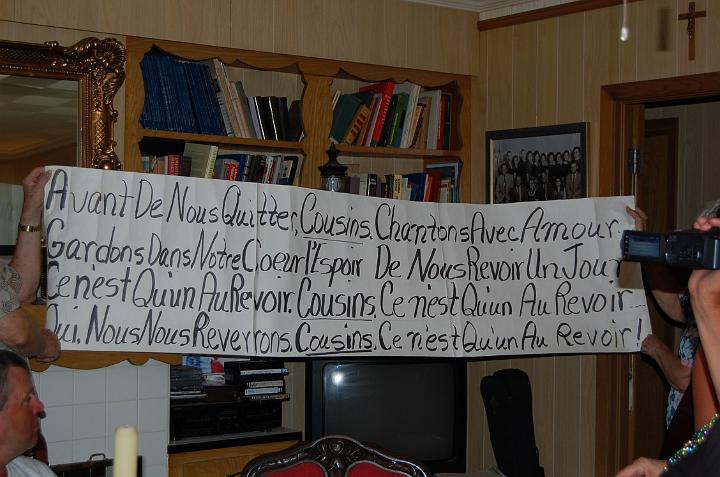 Avant De Nous Quitter, Cousins, Chantons Avec Amour.
Gardons Dans Notre Coeur l'Espoir De Nous Revoir Un Jour
Ce n'est Qu'un Au Revoir, Cousins, Ce n'est Qu'un Au Revoir
Oui, Nous Nous Reverrons, Cousins, Ce n'est Qu'un Au Revoir!